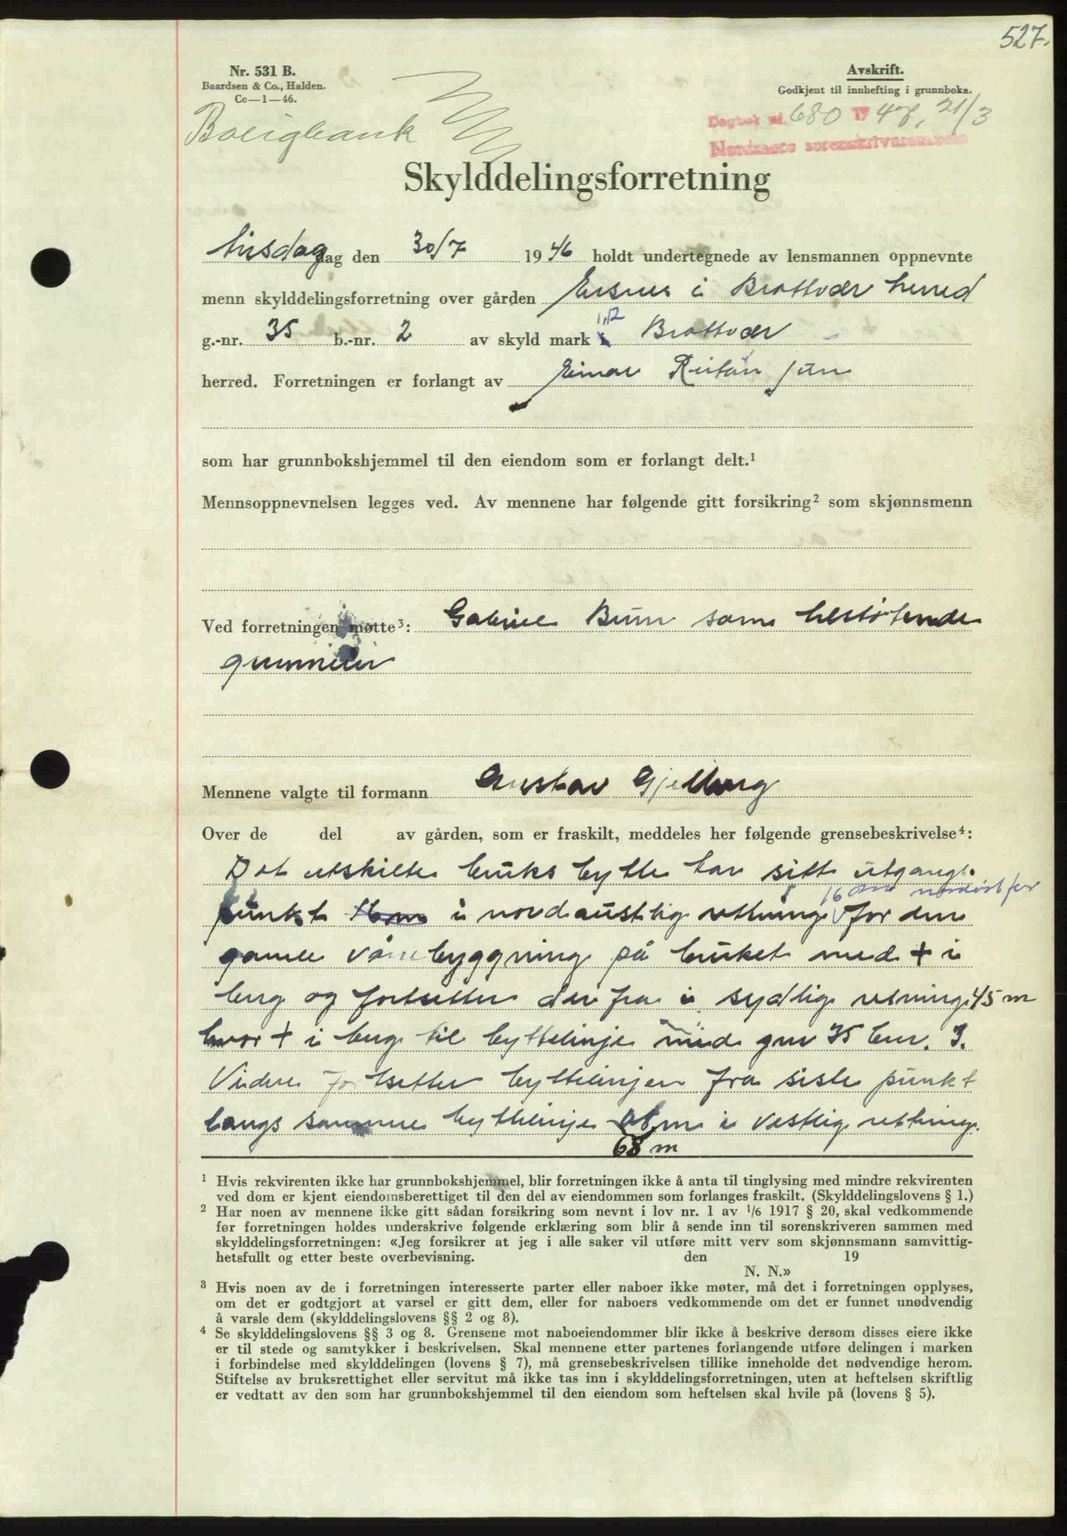 527.
Nr. 531 B.
Baardsen & Co., Halden.
Cc—1—46.
Avskrift.
Godkjent til innhefting i grunnboka.
Boligbank
Dagbok nr. 680 1947, 21/3
Nordmøre sorenskriverembete
Skylddelingsforretning
tirsdag dag den 30/7 1946 holdt undertegnede av lensmannen oppnevnte
menn skylddelingsforretning over gården i Brattvær herred
g.-nr. 35 b.-nr. 2 av skyld mark 1,12 Brattvær
herred. Forretningen er forlangt av Einar
som har grunnbokshjemmel til den eiendom som er forlangt delt.¹
Mennsoppnevnelsen legges ved. Av mennene har følgende gitt forsikring² som skjønnsmenn
Ved forretningen møtte³: som tilstøtende
grunneier
Mennene valgte til formann Gustav Gjelberg
Over de del av gården, som er fraskilt, meddeles her følgende grensebeskrivelse⁴:
Det utskilte bruks bytte har sitt utgangs-
punkt 16 m i nordaustlig retning 16 m nordøst for for den
gamle våne byggning på bruket med + i
berg og fortsetter derfra i sydlig retning 45 m
hvor + i berg til byttelinje med gnr 35 bnr. 3.
Videre fortsetter byttelinjen fra siste punkt
langs samme byttelinje m i vestlig retning.
68 m
¹ Hvis rekvirenten ikke har grunnbokshjemmel, blir forretningen ikke å anta til tinglysing med mindre rekvirenten
ved dom er kjent eiendomsberettiget til den del av eiendommen som forlanges fraskilt. (Skylddelingslovens § 1.)
² Har noen av mennene ikke gitt sådan forsikring som nevnt i lov nr. 1 av ¹/6 1917 § 20, skal vedkommende
før forretningen holdes underskrive følgende erklæring som blir å sende inn til sorenskriveren sammen med
skylddelingsforretningen: «Jeg forsikrer at jeg i alle saker vil utføre mitt verv som skjønnsmann samvittig-
hetsfullt og etter beste overbevisning. den 19
N. N.»
³ Hvis noen av de i forretningen interesserte parter eller naboer ikke møter, må det i forretningen opplyses,
om det er godtgjort at varsel er gitt dem, eller for naboers vedkommende om det er funnet unødvendig
å varsle dem (skylddelingslovens §§ 2 og 8).
⁴ Se skylddelingslovens §§ 3 og 8. Grensene mot naboeiendommer blir ikke å beskrive dersom disses eiere ikke
er til stede og samtykker i beskrivelsen. Skal mennene etter partenes forlangende utføre delingen i marken
i forbindelse med skylddelingen (lovens § 7), må grensebeskrivelsen tillike inneholde det nødvendige herom.
Stiftelse av bruksrettighet eller servitut må ikke tas inn i skylddelingsforretningen, uten at heftelsen skriftlig
er vedtatt av den som har grunnbokshjemmel til den eiendom som heftelsen skal hvile på (lovens § 5).